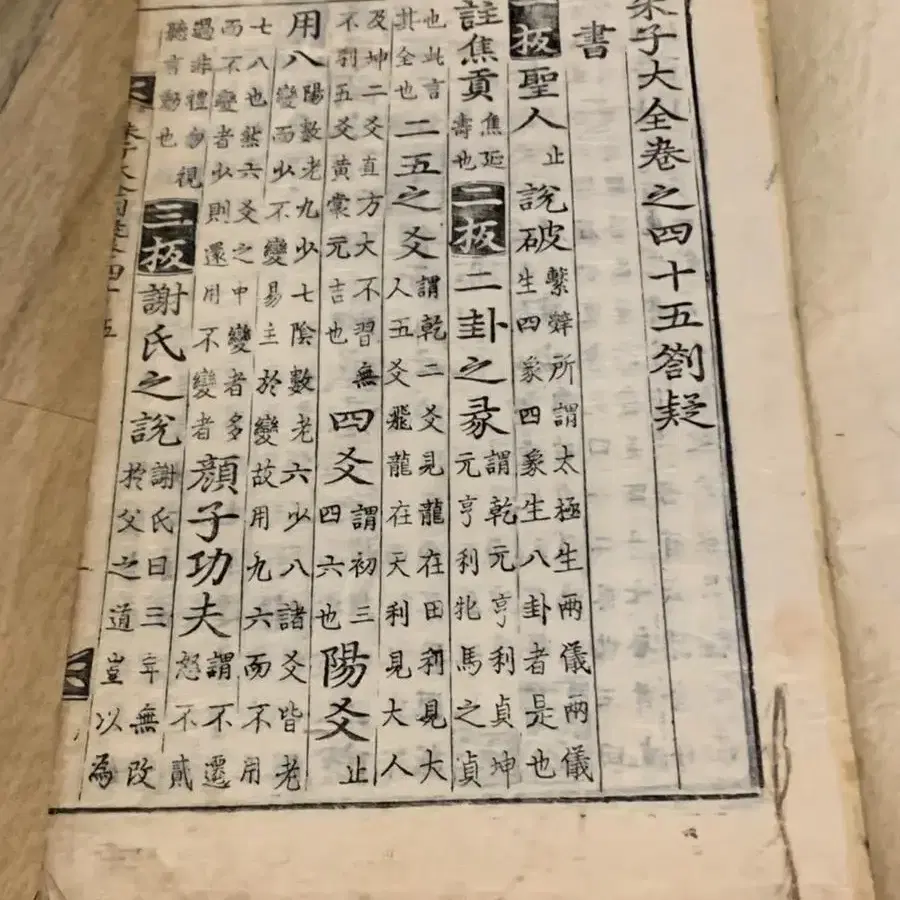 朱子大全卷之四十五劄疑
書
一板聖人止說破繫辭所謂太極生兩儀兩儀生四象四象生八卦者是也
註焦貢焦延壽也二板二卦之彖謂乾元亨利貞坤元亨利牝馬之貞
也此言其全也二五之爻謂乾二爻見龍在田利見大人五爻飛龍在天利見大人
及坤二爻直方大不習無不利五爻黃裳元吉也四爻謂初三四六也陽爻止
用八陽數老九少七陰數老六少八諸爻皆老變而少不變易主於變故用九六而不用
七八也然六爻之中變者多而不變者少則還用不變者顔子功夫謂不遷怒不貳
過非禮勿視聽言動也三板謝氏之說謝氏曰三年無改於父之道豈以為
朱子大全劄疑卷四十五